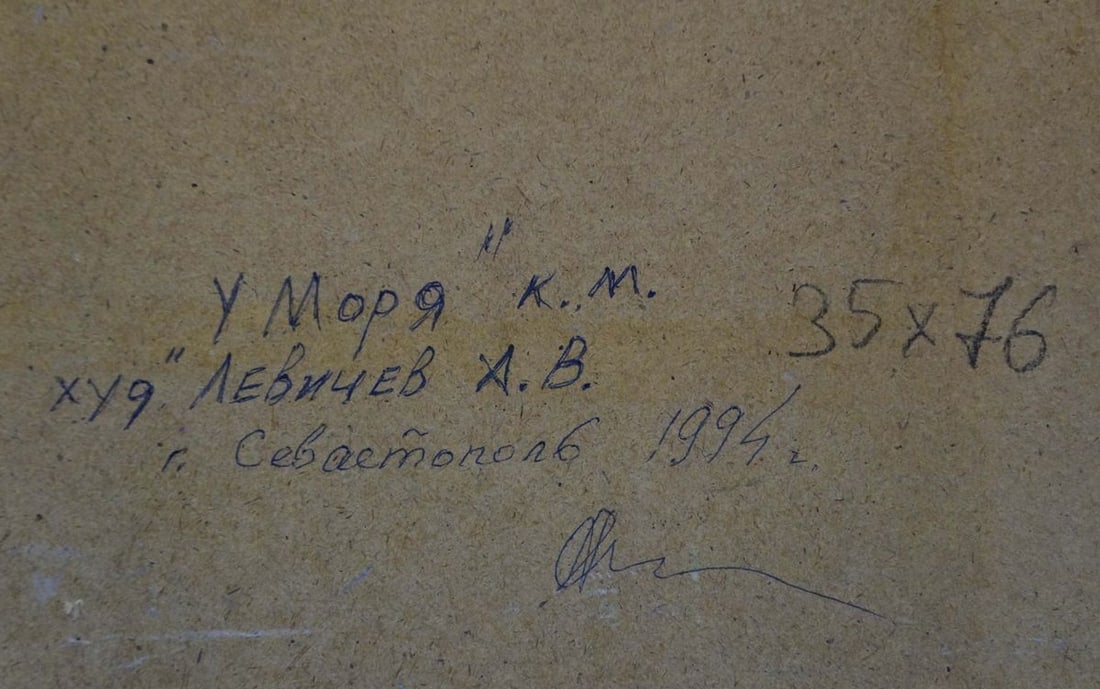 У Моря" к.м.
худ" Левичев А.В.
г. Севастополь 1994 г.
35x76